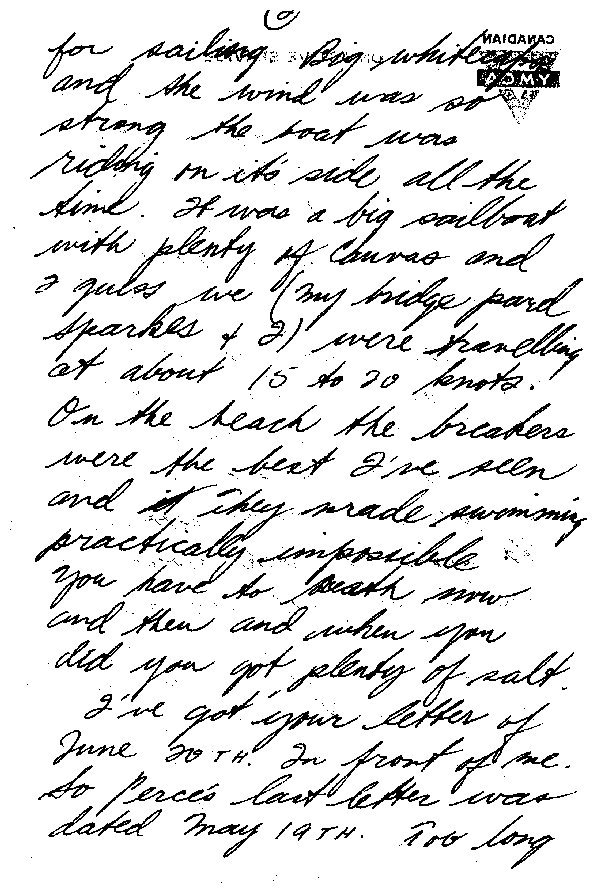 6
for sailing. Big whitecaps
and the wind was so
strong the boat was
riding on it's side all the
time. It was a big sailboat
with plenty of canvas and
I guess we (my bridge pard
sparkes + I) were travelling
at about 15 to 20 knots.
On the beach the breakers
were the best I've seen
and it They made swimming
practically impossible
You have to breath now
and then and when you
did you got plenty of salt.
I've got your letter of
June 20TH. In front of me.
So Perce's last letter was
dated May 19TH. Too long
CANADIAN
YMCA